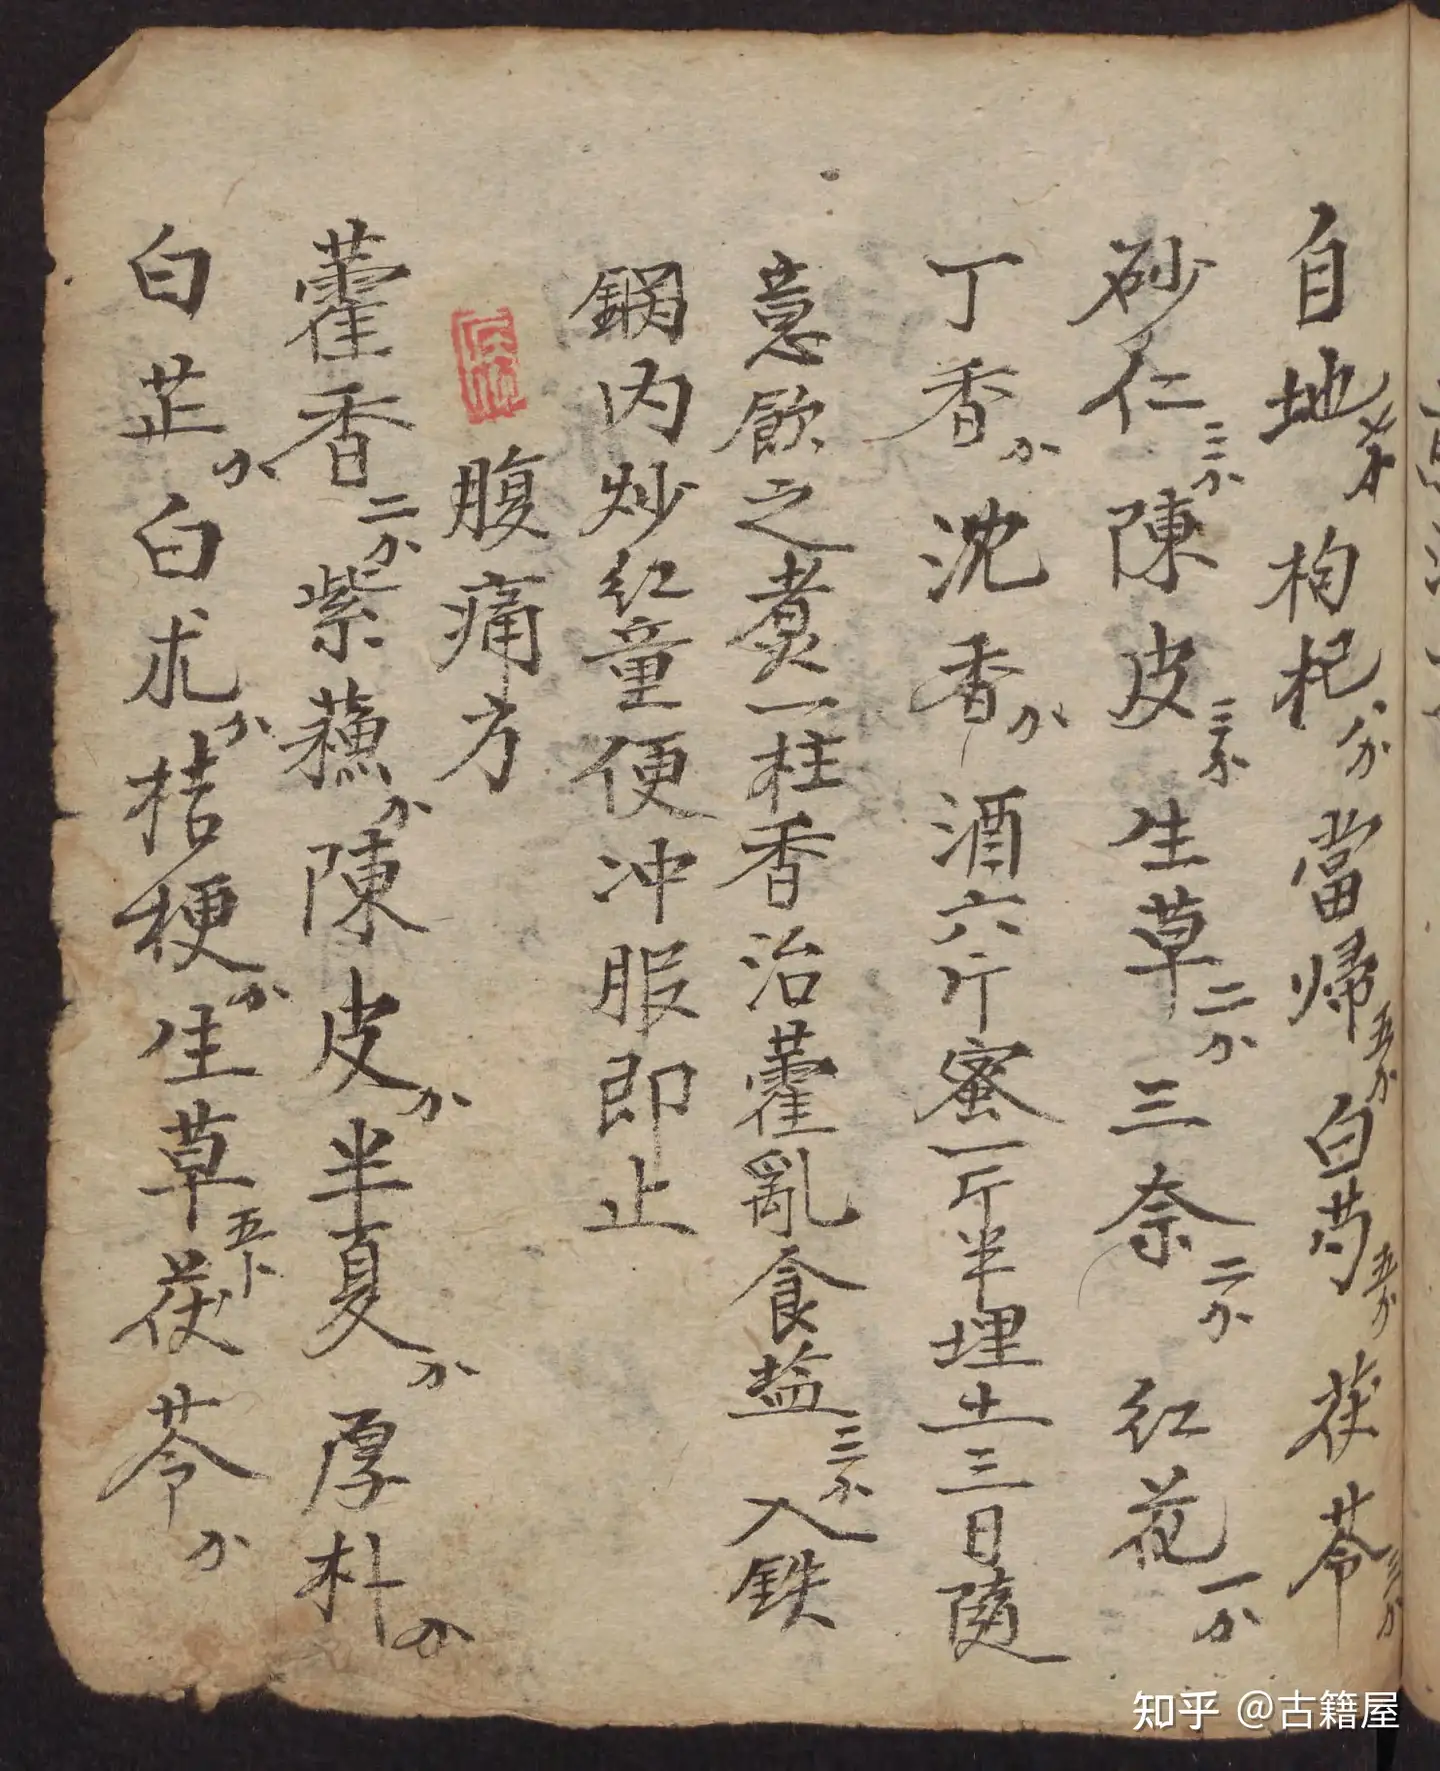 自地 枸杞八分當歸五分白芍五分茯苓三分
砂仁三分陳皮三分生草二分三奈二分紅花一分
丁香分沈香分酒六斤蜜一斤半埋土三日随
意飲之煑一柱香治藿亂食盐三分入鉄
鍋内炒紅童便冲服即止
腹痛方
藿香二分紫蘓分陳皮分半夏分厚朴分
白芷分白朮分桔梗分生草五卜茯苓分
知乎 @古籍屋